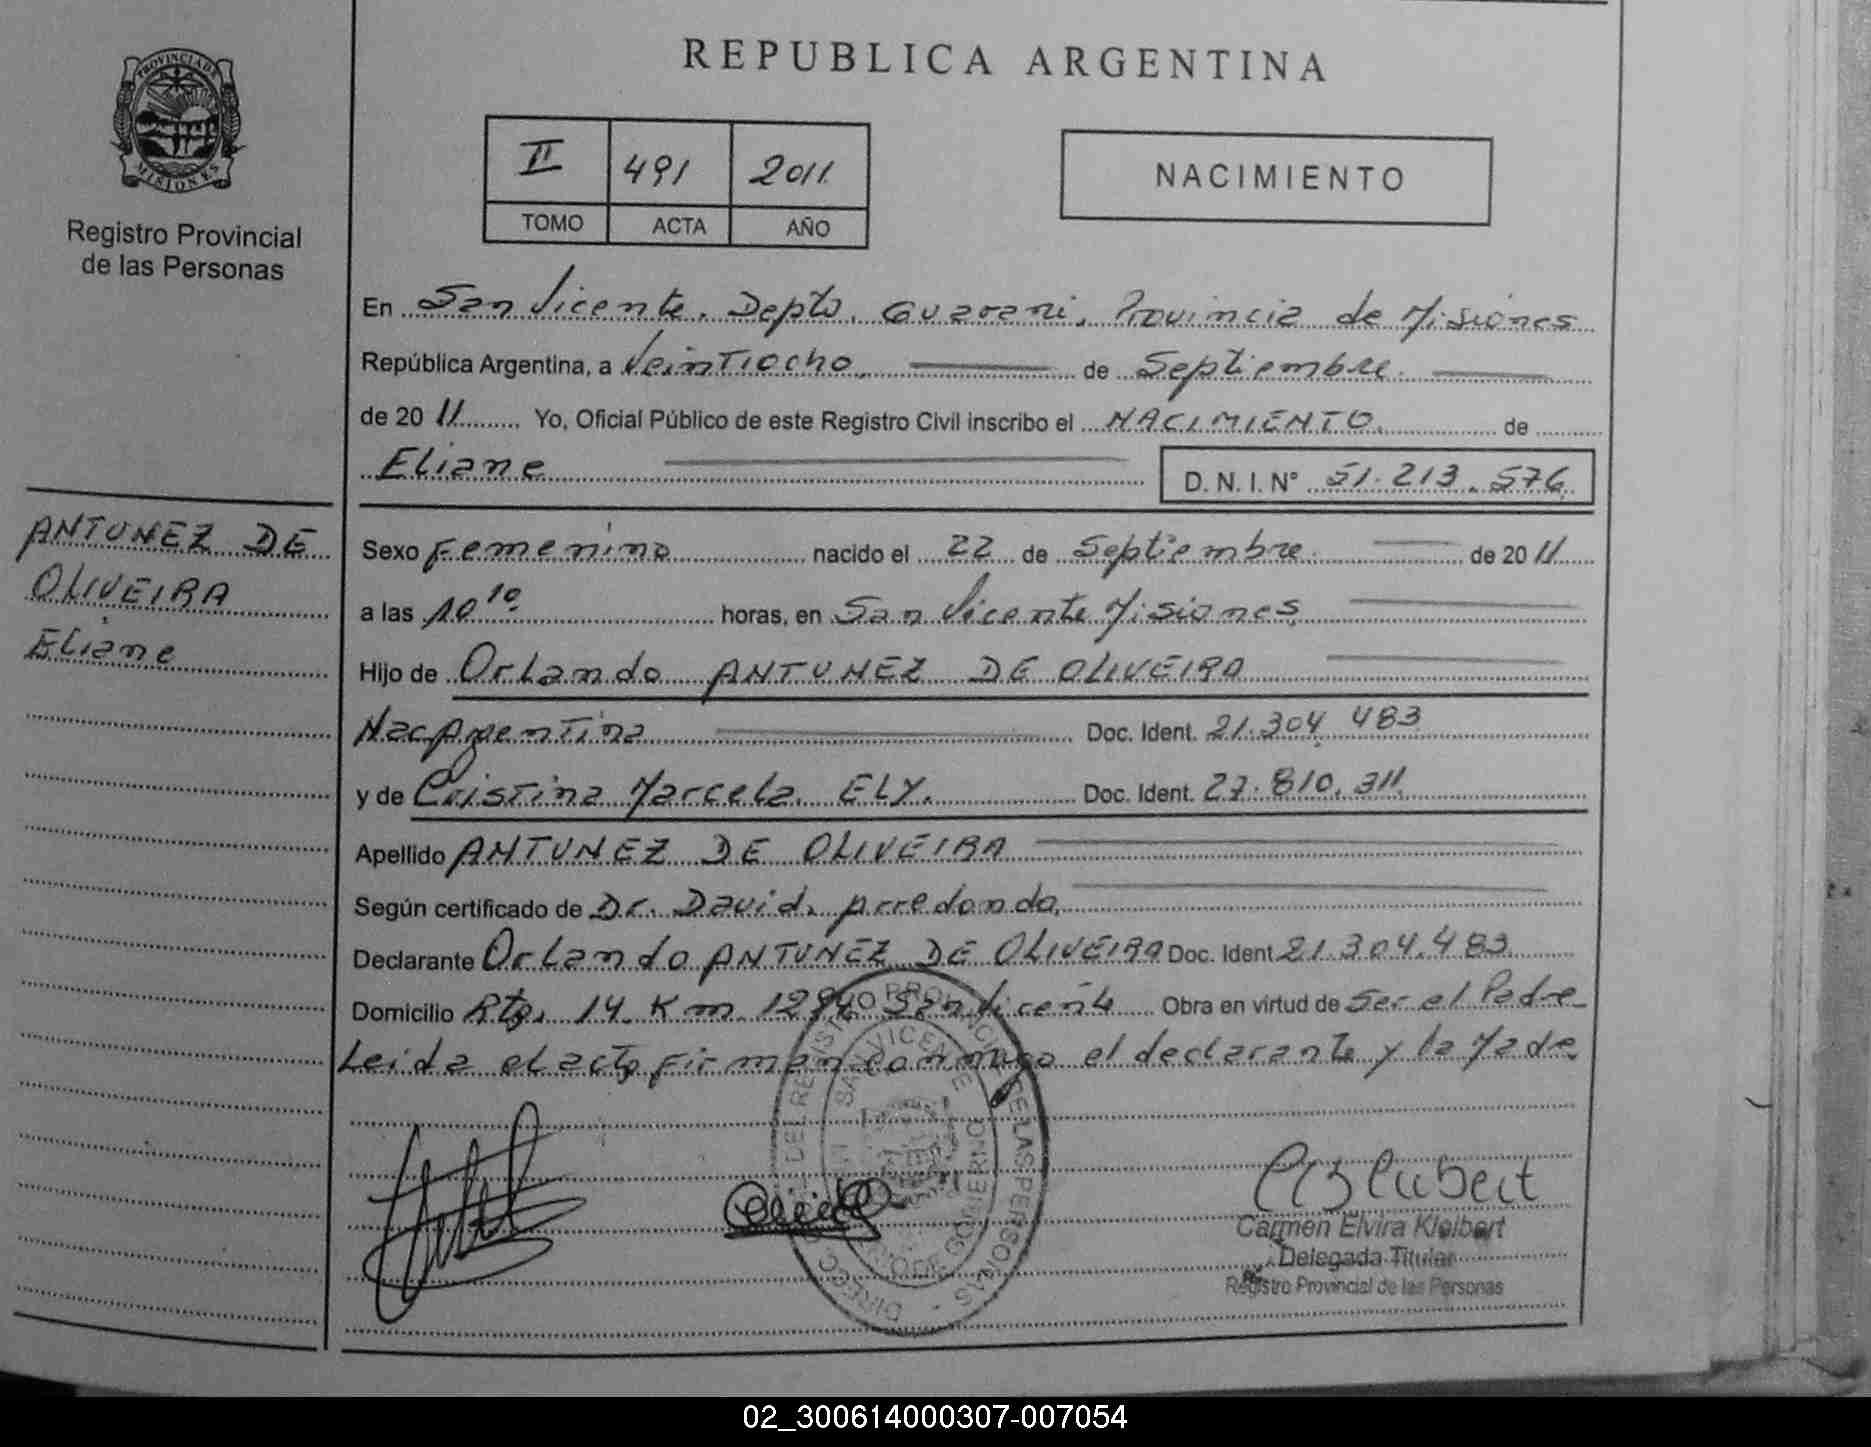 PROVINCIA DE
MISIONES
Registro Provincial
de las Personas
ANTUNEZ DE
OLIVEIRA
Eliane
REPUBLICA ARGENTINA
II 491 2011
TOMO ACTA AÑO
NACIMIENTO
En San Vicente. Depto. Guarani. Provincia de Misiones
República Argentina, a Veintiocho. de Septiembre.
de 20 11 Yo, Oficial Público de este Registro Civil inscribo el NACIMIENTO. de
Eliane D. N. I. N° 51.213.576
Sexo Femenino nacido el 22 de Septiembre. de 20 11
a las 10 10 horas, en San Vicente Misiones.
Hijo de Orlando ANTUNEZ DE OLIVEIRA
Nac Argentina Doc. Ident. 21.304.483
y de Cristina Marcela. ELY. Doc. Ident. 27.810.311
Apellido ANTUNEZ DE OLIVEIRA
Según certificado de Dr. David. Arredondo.
Declarante Orlando ANTUNEZ DE OLIVEIRA Doc. Ident 21.304.483
Domicilio Rta. 14. Km. San Vicente Obra en virtud de Ser el Padre
Leida el acta firman conmigo el declarante y la Madre.
SAN VICENTE
DE LAS PERSONAS
Carmen Elvira Kleibert
Delegada Titular
Registro Provincial de las Personas
02_300614000307-007054